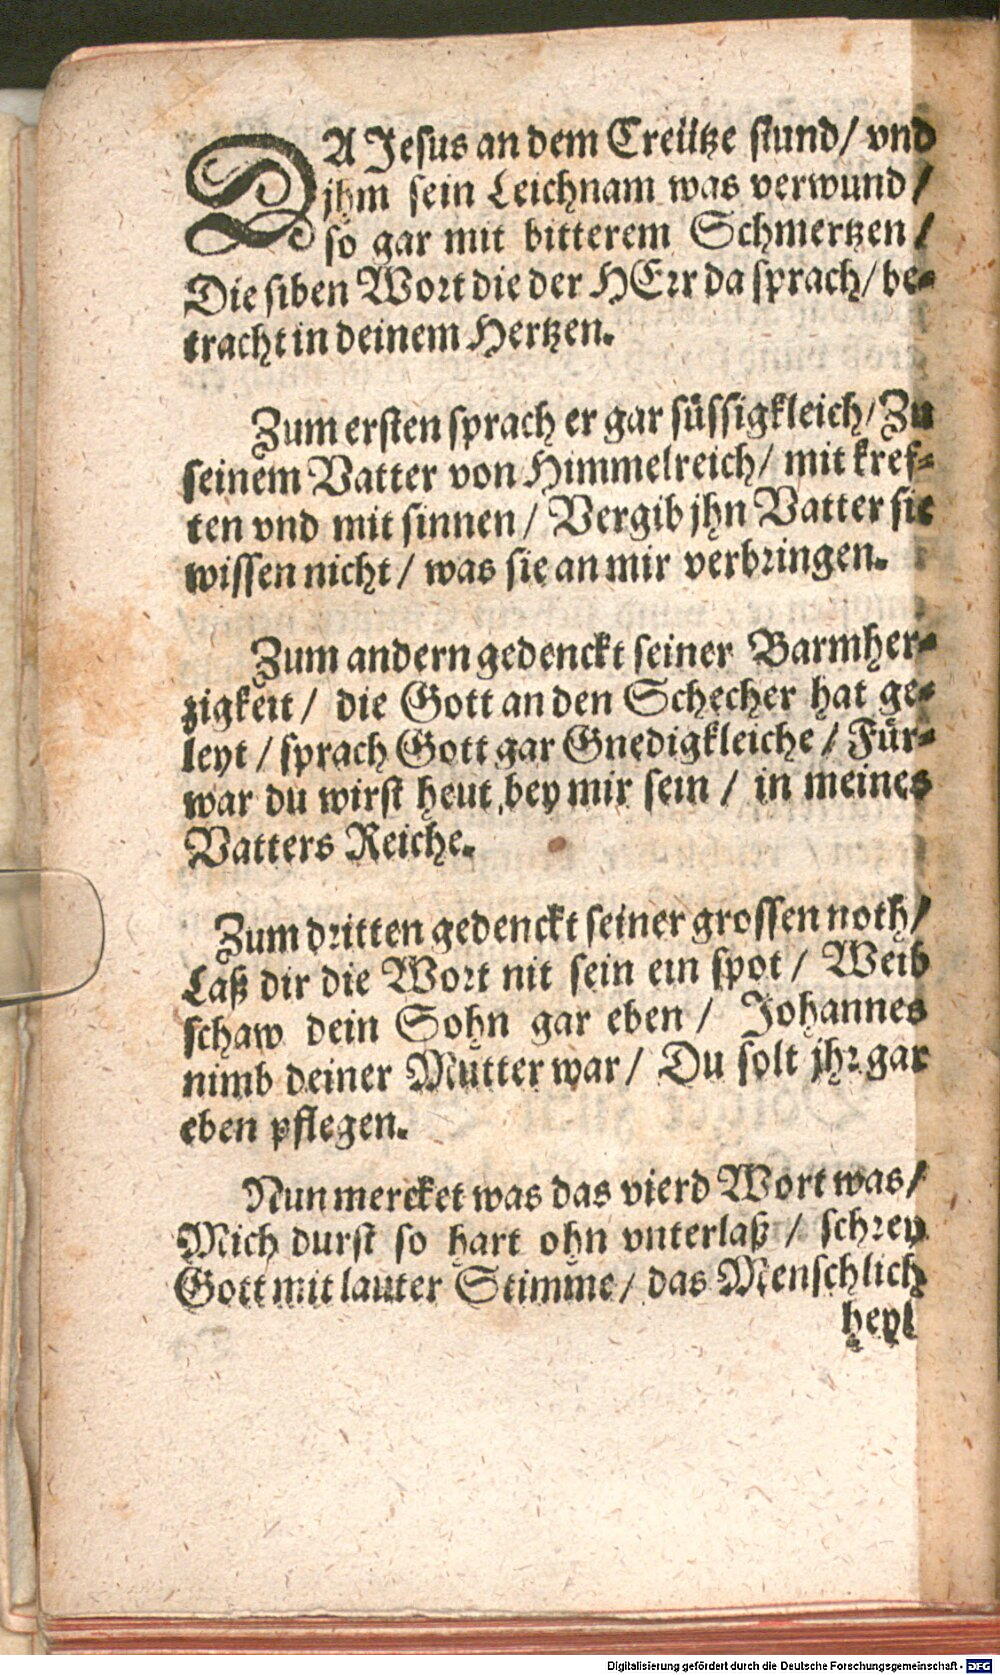 DA Jesus an dem Creütze stund/ vnd
jhm sein Leichnam was verwund/
so gar mit bitterem Schmertzen/
Die siben Wort die der HErr da sprach/ be-
tracht in deinem Hertzen.
Zum ersten sprach er gar süssigkleich/ Zu
seinem Vatter von Himmelreich/ mit kref-
ten vnd mit sinnen/ Vergib jhn Vatter sie
wissen nicht/ was sie an mir verbringen.
Zum andern gedenckt seiner Barmher-
zigkeit/ die Gott an den Schecher hat ge-
leyt/ sprach Gott gar Gnedigkleiche/ Für-
war du wirst heut bey mir sein/ in meines
Vatters Reiche.
Zum dritten gedenckt seiner grossen noth/
Laß dir die Wort nit sein ein spot/ Weib
schaw dein Sohn gar eben/ Johannes
nimb deiner Mutter war/ Du solt jhr gar
eben pflegen.
Nun mercket was das vierd Wort was/
Mich durst so hart ohn vnterlaß/ schrey
Gott mit lauter Stimme/ das Menschlich
heyl
Digitalisierung gefördert durch die Deutsche Forschungsgemeinschaft - DFG